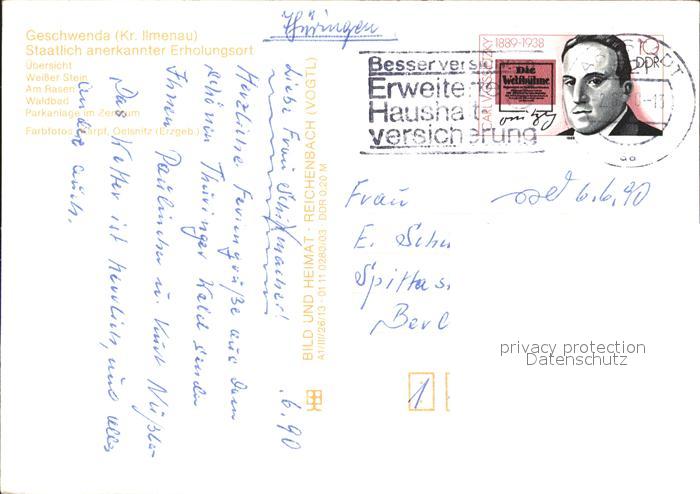 Thüringen
Geschwenda (Kr. Ilmenau)
Staatlich anerkannter Erholungsort
Übersicht
Weißer Stein
Am Rasen
Waldbad
Parkanlage im Zentrum
Farbfotos: Karpf, Oelsnitz (Erzgeb.)
.6.90
Liebe Frau Schumacher!
Herzliche Feriengrüße aus dem
schönen Thüringer Wald senden
Ihnen Paulinchen u. Kurt
Das Wetter ist herrlich, und alles
andere auch.
BILD UND HEIMAT · REICHENBACH (VOGTL)
A1/III/26/13 · 01 11 0280/03 DDR 0,20 M
Besser versich
Erweiterte
Haushalt
versicherung
CARL VON OSSIETZKY
1889-1938
Die
Weltbühne
10
DDR
Frau
6.6.90
E. Schu
Spittas
Berl
1
privacy protection
Datenschutz